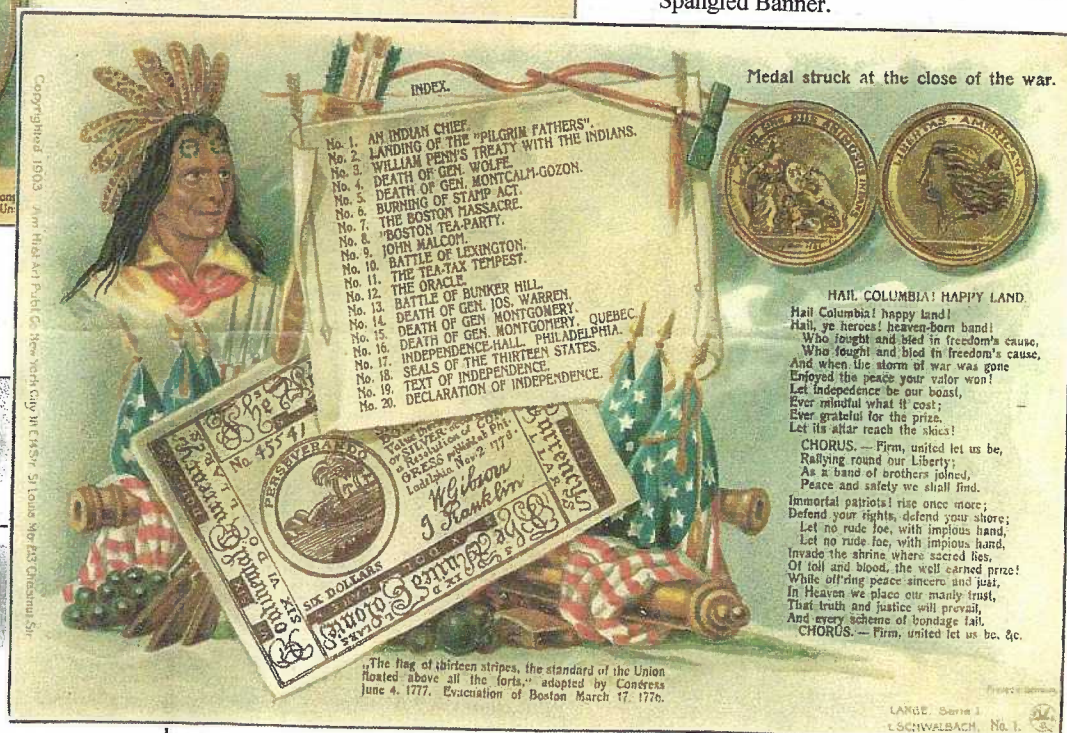 Spangled Banner.
INDEX.
No. 1. AN INDIAN CHIEF.
No. 2. LANDING OF THE "PILGRIM FATHERS".
No. 3. WILLIAM PENN'S TREATY WITH THE INDIANS.
No. 4. DEATH OF GEN. WOLFE.
No. 5. DEATH OF GEN. MONTCALM-GOZON.
No. 6. BURNING OF STAMP ACT.
No. 7. THE BOSTON MASSACRE.
No. 8. "BOSTON TEA-PARTY.
No. 9. JOHN MALCOM.
No. 10. BATTLE OF LEXINGTON.
No. 11. THE TEA-TAX TEMPEST.
No. 12. THE ORACLE.
No. 13. BATTLE OF BUNKER HILL.
No. 14. DEATH OF GEN. JOS. WARREN.
No. 15. DEATH OF GEN MONTGOMERY.
No. 16. DEATH OF GEN. MONTGOMERY, QUEBEC.
No. 17. INDEPENDENCE-HALL, PHILADELPHIA.
No. 18. SEALS OF THE THIRTEEN STATES.
No. 19. TEXT OF INDEPENDENCE.
No. 20. DECLARATION OF INDEPENDENCE.
Medal struck at the close of the war.
LIBERTAS · AMERICANA
HAIL COLUMBIA! HAPPY LAND.
Hail Columbia! happy land!
Hail, ye heroes! heaven-born band!
Who fought and bled in freedom's cause,
Who fought and bled in freedom's cause,
And when the storm of war was gone
Enjoyed the peace your valor won!
Let indepedence be our boast,
Ever mindful what it cost;
Ever grateful for the prize,
Let its altar reach the skies!
CHORUS. — Firm, united let us be,
Rallying round our Liberty;
As a band of brothers joined,
Peace and safety we shall find.
Immortal patriots! rise once more;
Defend your rights, defend your shore;
Let no rude foe, with impious hand,
Let no rude foe, with impious hand,
Invade the shrine where sacred lies,
Of toil and blood, the well earned prize!
While off'ring peace sincere and just,
In Heaven we place our manly trust,
That truth and justice will prevail,
And every scheme of bondage fail.
CHORUS. — Firm, united let us be, &c.
No. 45541
PERSEVERANDO
SIX DOLLARS
or SILVER
GRESS
ladelphia, Nov. 2 1776.
W Gibson
J Franklin
Currency
The United
Colonies
Continental
SIX
„The flag of thirteen stripes, the standard of the Union
floated above all the forts," adopted by Congress
June 4. 1777. Evacuation of Boston March 17. 1776.
Copyrighted 1903 Am Hist Art Publ Co New York City 111 E 14 Str. St Louis Mo
LANGE. Serie 1
L SCHWALBACH, No. 1.